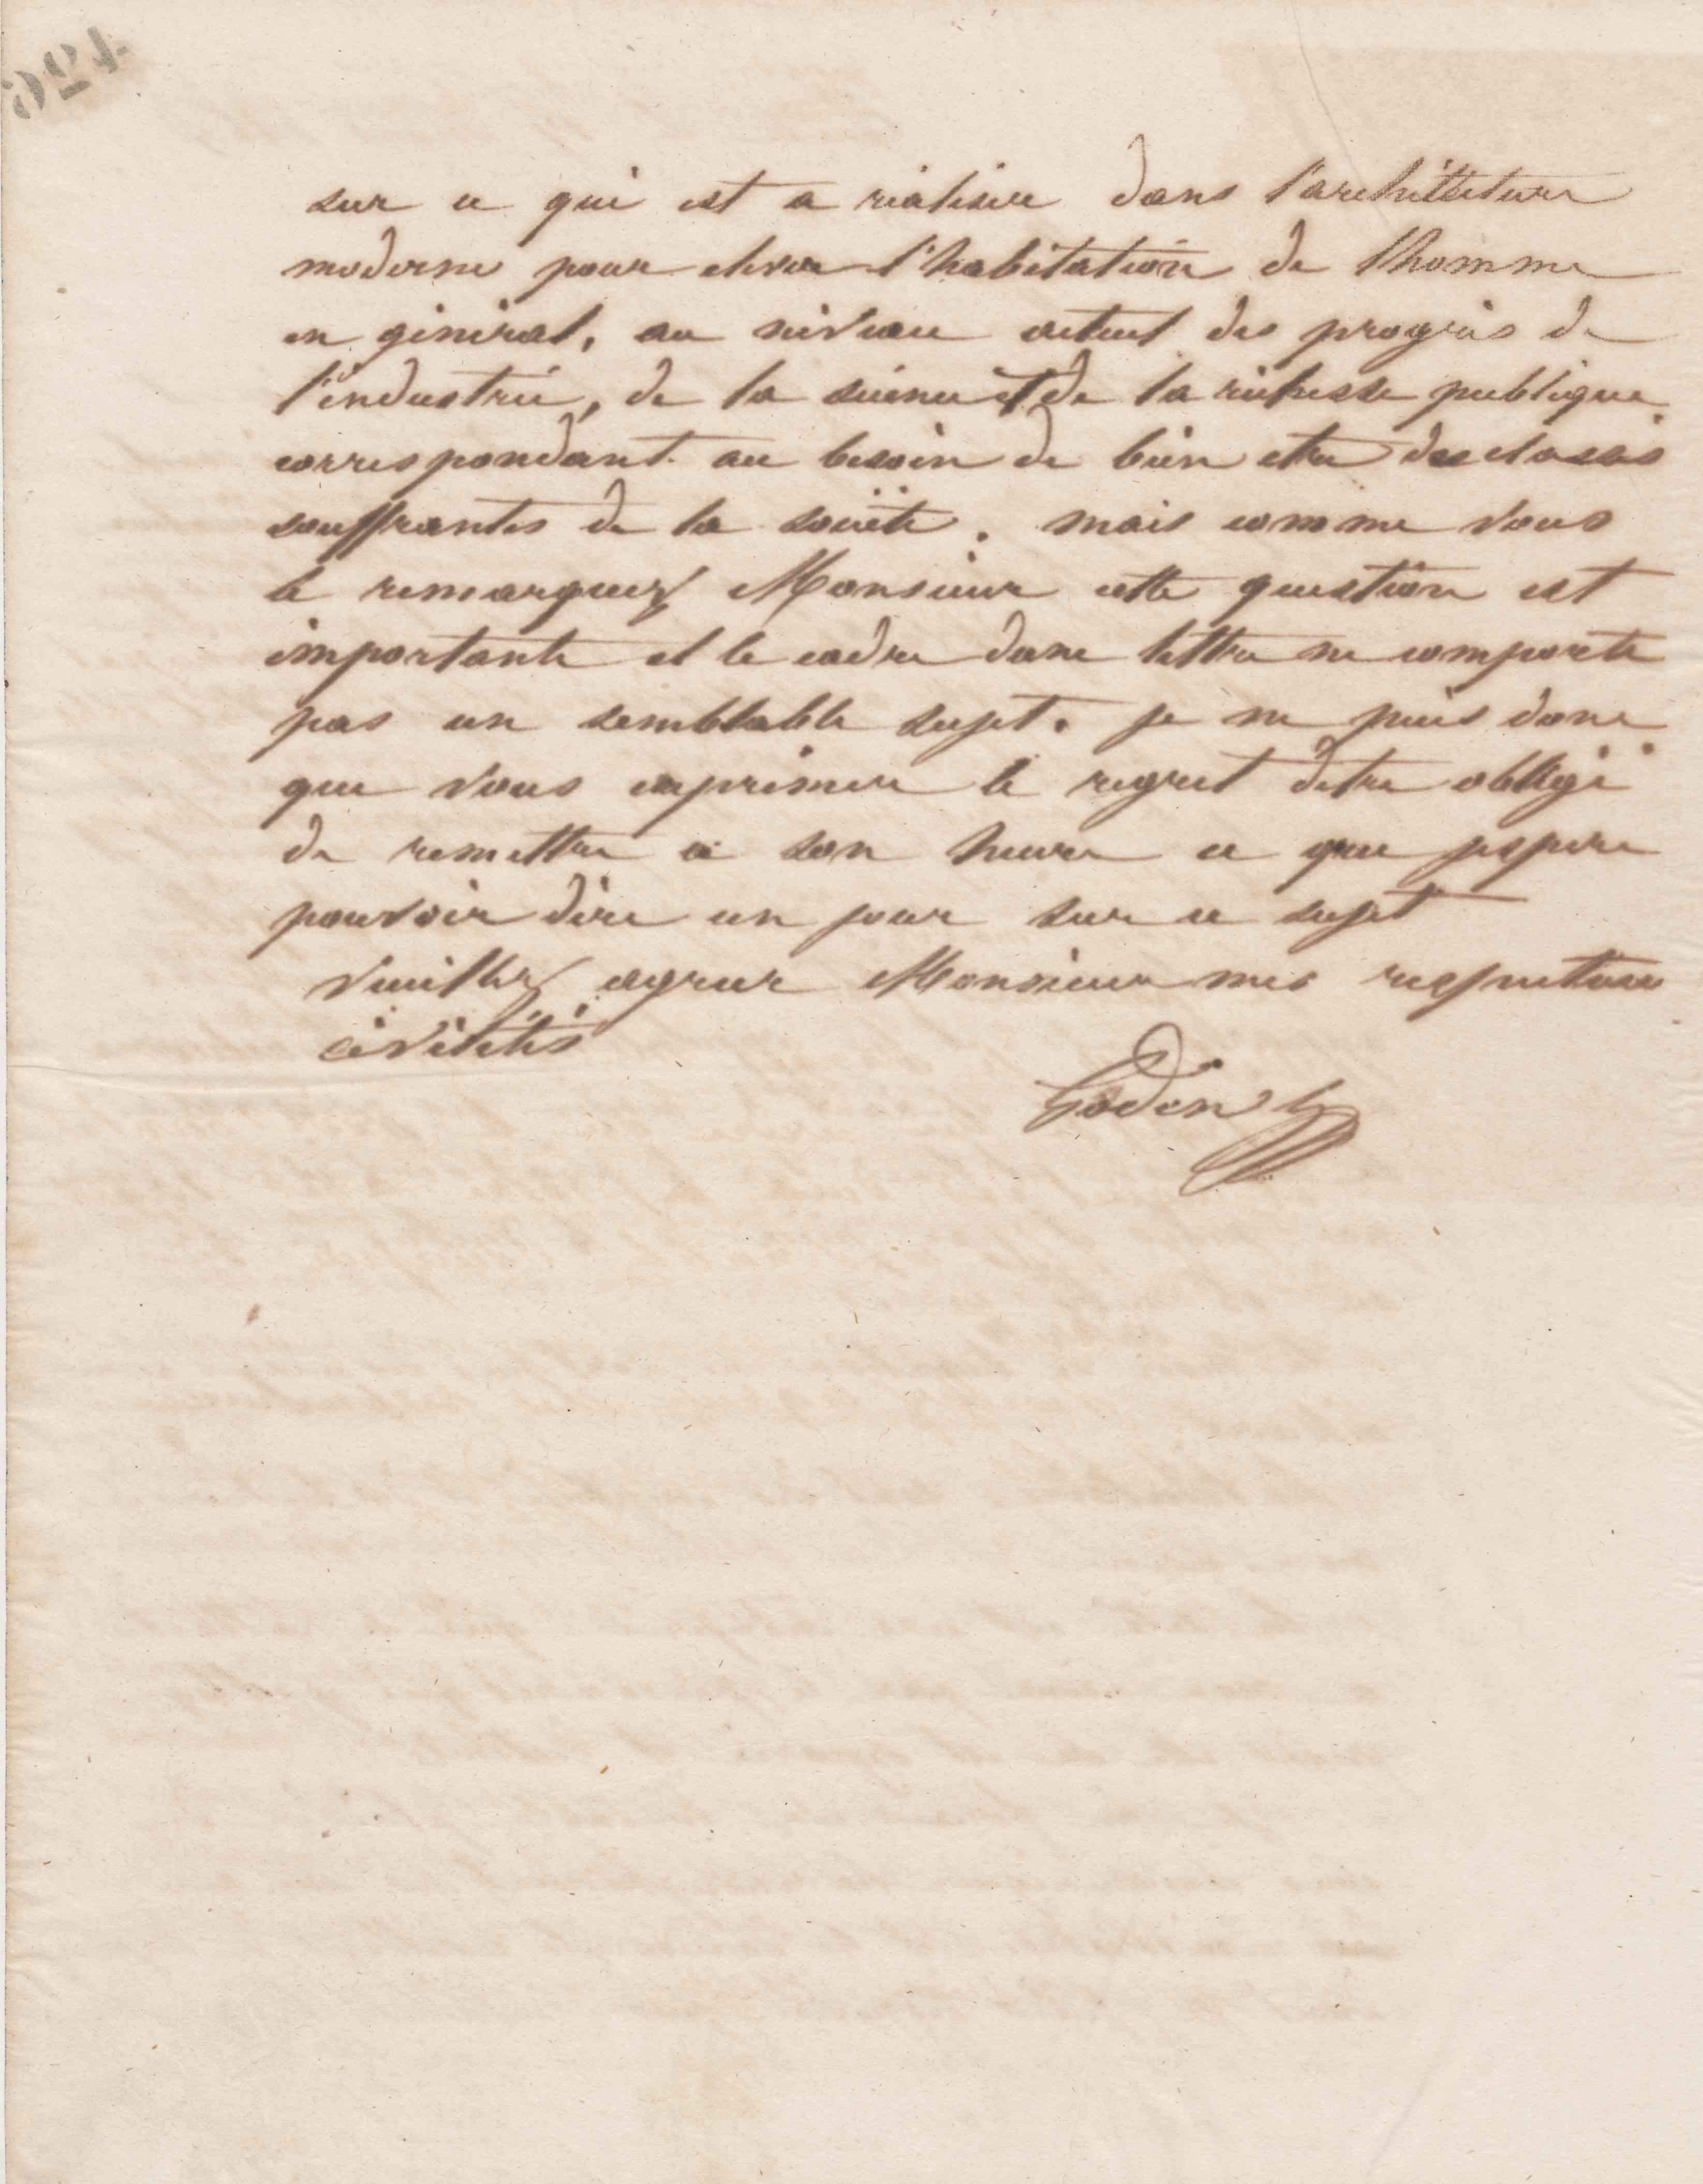 sur ce qui est a réaliser dans l'architecture
moderne pour elever l'habitation de l'homme
en géniral, au niveau actuel des progrès de
l'industrie, de la science et de la richesse publique
correspondant au besoin de bien etre des classes
souffrantes de la société. mais comme vous
le remarquez Monsieur cette question est
importante et le cadre dune lettre ne comporte
pas un semblable sujet. je ne puis donc
que vous exprimer le regret detre obligé
de remettre a son heure ce que jespere
pouvoir dire un jour sur ce sujet
Veuillez agreer Monsieur mes respectueuses
civilités
Godin